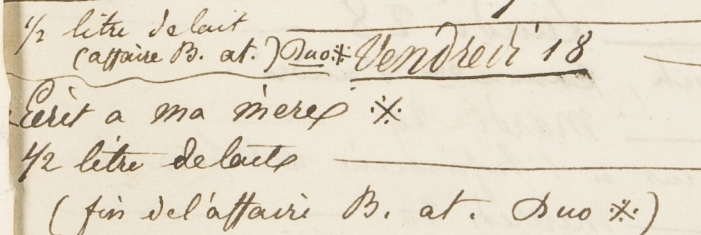 1/2 litre de lait
(affaire B. at.) Duo ※ Vendredi 18
Ecrit a ma mere ※
1/2 litre de lait
(fin de l'affaire B. at. Duo ※)